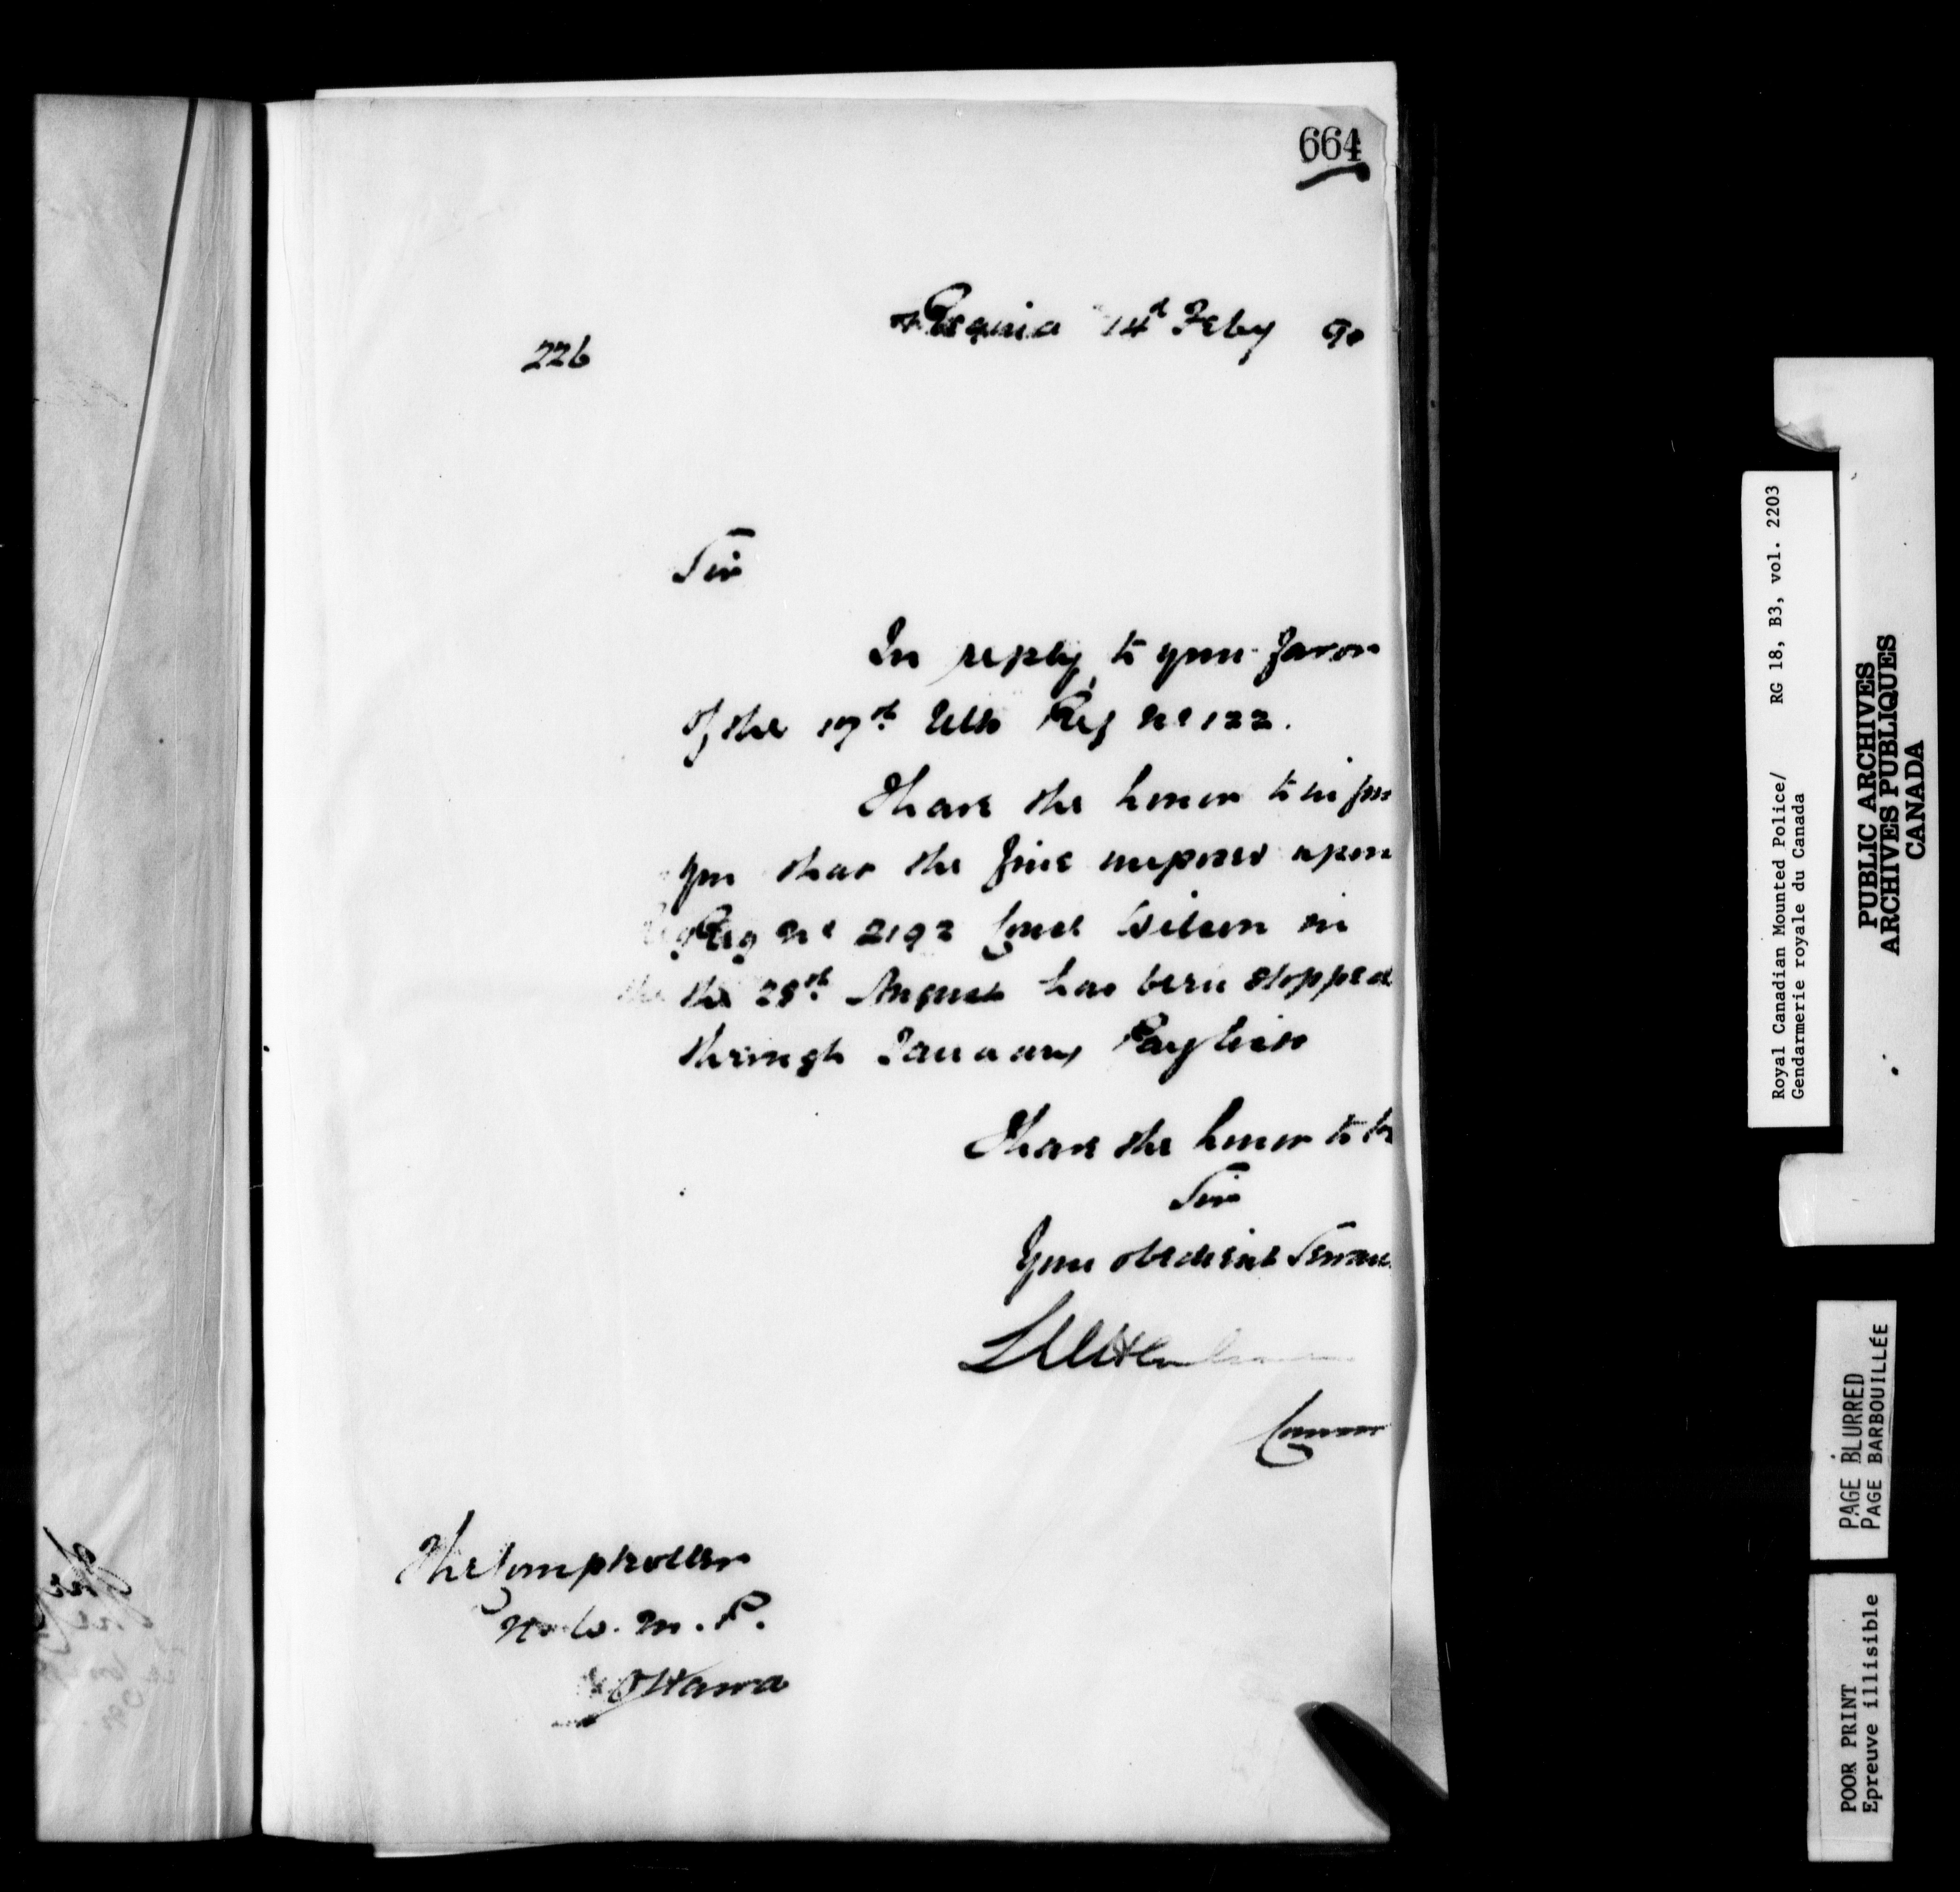 664
Regina 14th Feby 90
226
Sir
In reply to your favor
of the 17th Ulto Ref No 122.
I have the honor to inform
you that the fine imposed upon
Reg No 2192 Const Wilson on
the 28th August has been stopped
through January Paylist
I have the honor to be
Sir
Your obedient Servant
Commr
The Comptroller
N. W. M. P.
Ottawa
Royal Canadian Mounted Police/ RG 18, B3, vol. 2203
Gendarmerie royale du Canada
PUBLIC ARCHIVES
ARCHIVES PUBLIQUES
CANADA
PAGE BLURRED
PAGE BARBOUILLÉE
POOR PRINT
Epreuve illisible